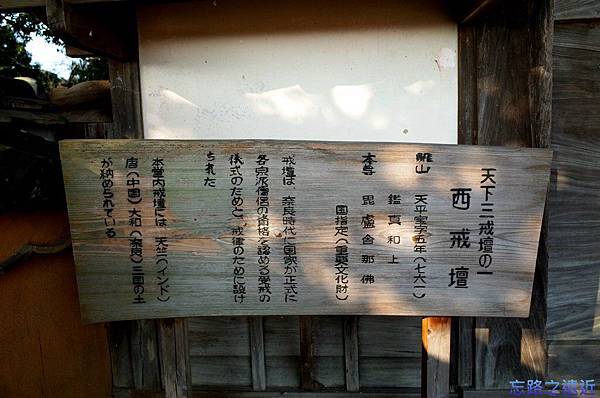 天下三戒壇の一
西戒壇
開山 天平宝字五年(七六一)
鑑真和上
本尊 毘盧舎那佛
国指定(重要文化財)
戒壇は、奈良時代に国家が正式に
各宗派僧侶の資格を認める受戒の
儀式のためと、戒律のために設け
られた
本堂内戒壇には、天竺(インド)
唐(中国)大和(奈良)三国の土
が納められている
忘路之遠近